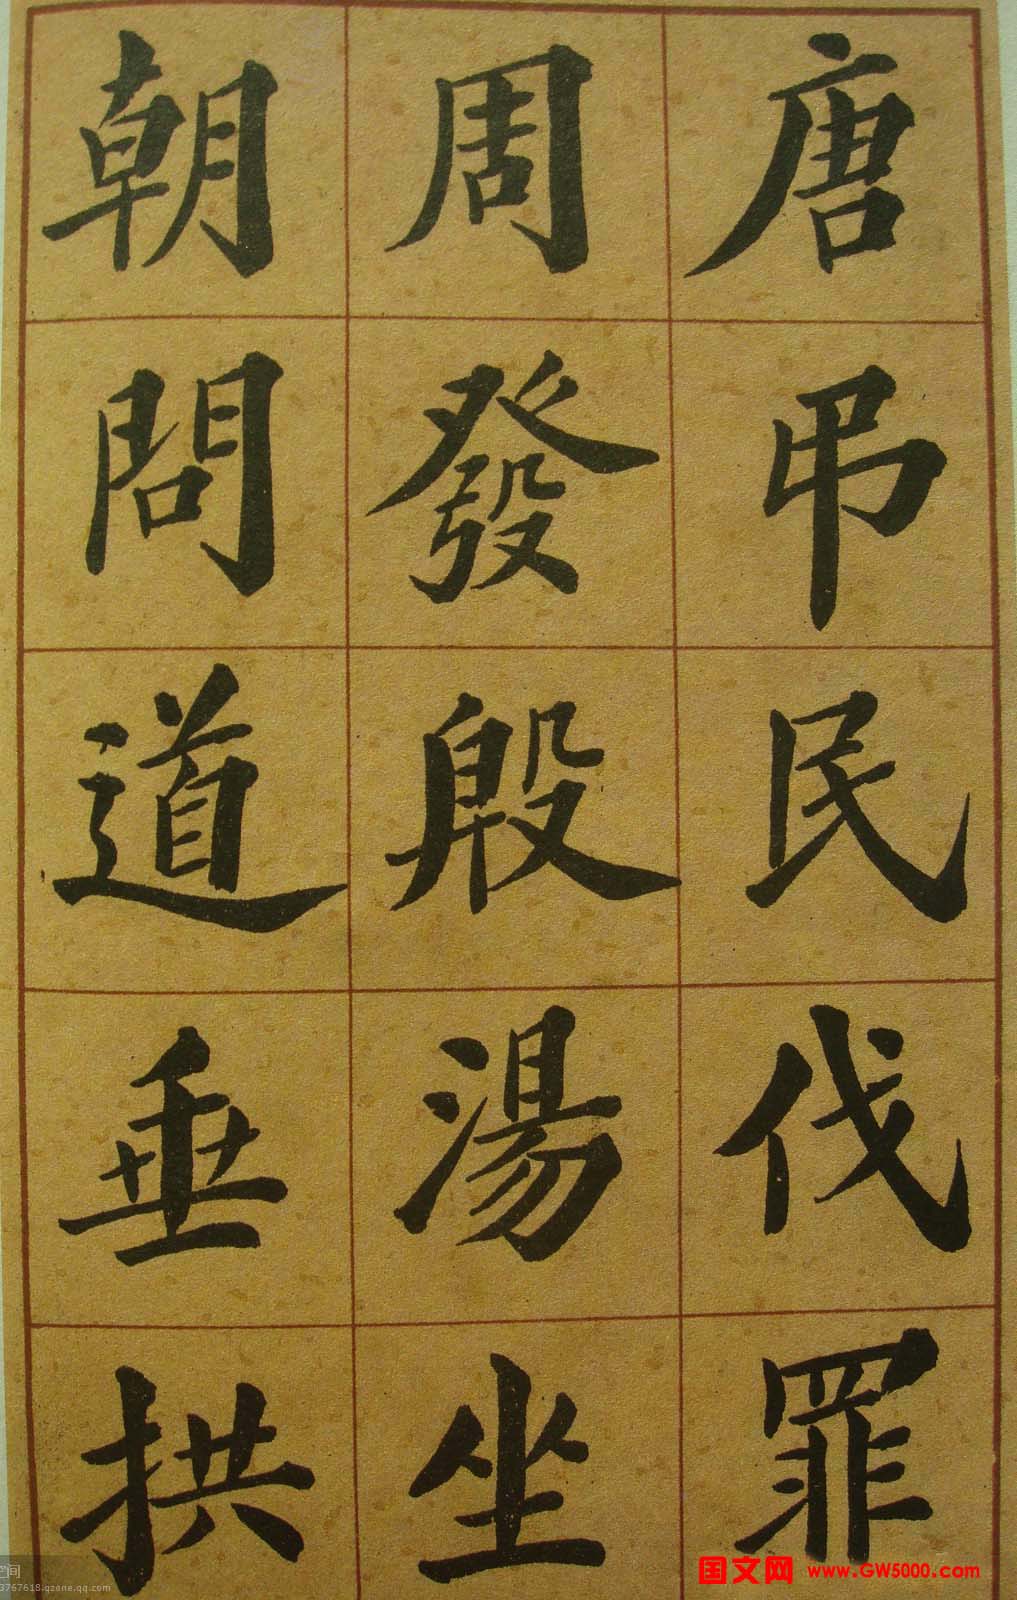 唐弔民伐罪
周發殷湯坐
朝問道垂拱
国文网 www.GW5000.com
空间
3767618.qzone.qq.com